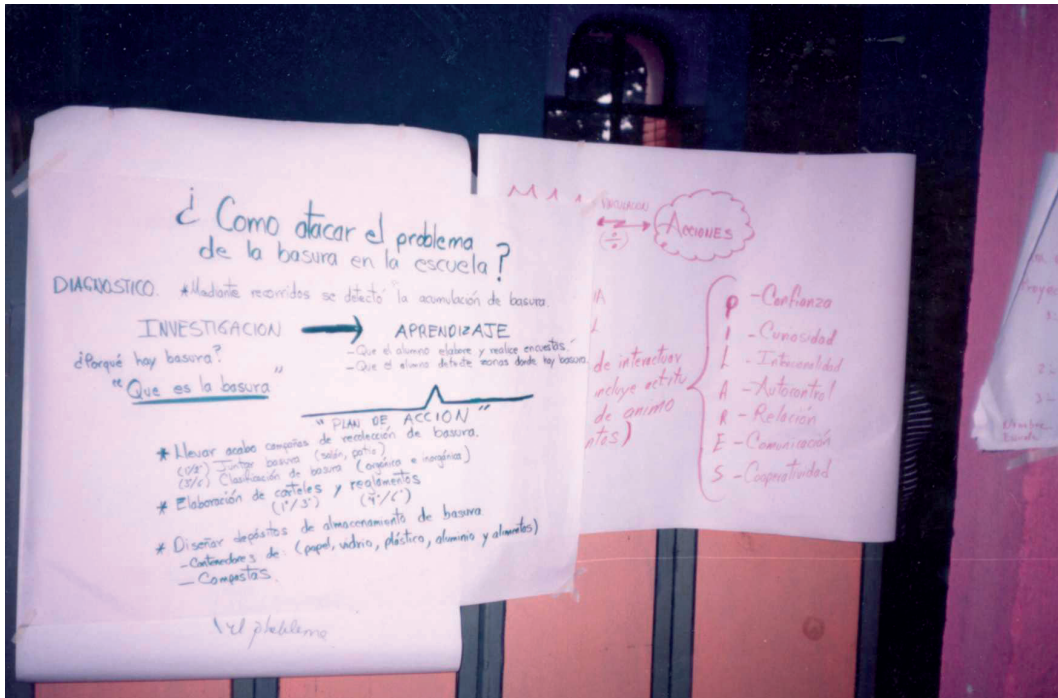 ¿ Como atacar el problema
de la basura en la escuela ?
DIAGNOSTICO. * Mediante recorridos se detectó la acumulación de basura.
INVESTIGACION → APRENDIZAJE
¿Porqué hay basura?
"Que es la basura"
- Que el alumno elabore y realice encuestas.
- Que el alumno detecte zonas donde hay basura.
"PLAN DE ACCION"
* Llevar acabo campañas de recolección de basura.
Juntar basura (salón, patio)
Clasificación de basura (orgánica e inorgánica)
* Elaboración de carteles y reglamentos
(1°/3°) (4°/6°)
* Diseñar depósitos de almacenamiento de basura
- Contenedores de: (papel, vidrio, plástico, aluminio y alimentos)
- Compostas.
el problema
ACCIONES
de interactuar
incluye actitu
de animo
ntos)
P - Confianza
I - Curiosidad
L - Intencionalidad
A - Autocontrol
R - Relación
E - Comunicación
S - Cooperatividad